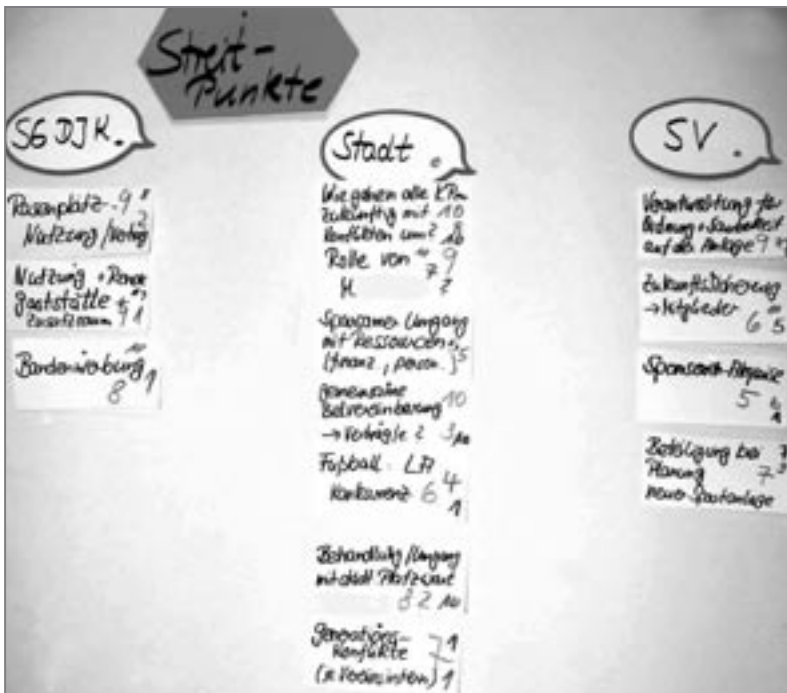 Streit-
Punkte
SG DJK.
Rasenplatz 9
Nutzung/Vertrag
Nutzung
gaststätte +
Zusatzraum 9 1
Bandenwerbung
8 1
Stadt.
Wie gehen alle
zukünftig mit 10
Konflikten um? 10
Rolle von 9
7
H ?
Sparsamer Umgang
mit Ressourcen
(finanz., person.) 5
gemeinsame
10
→ Verträge? 3 10
Fußball: LA
Konkurrenz 6 4
1
Behandlung/Umgang
mit städt. Platzwart
8 2 10
Generations-
Konflikte 7 1
1
SV.
Verantwortung für
Ordnung + Sauberkeit
auf der Anlage 9
Zukunftssicherung
→ Mitglieder 6 5
Sponsoren-Akquise
5
1
Beteiligung bei
Planung 7
neuer Sportanlage